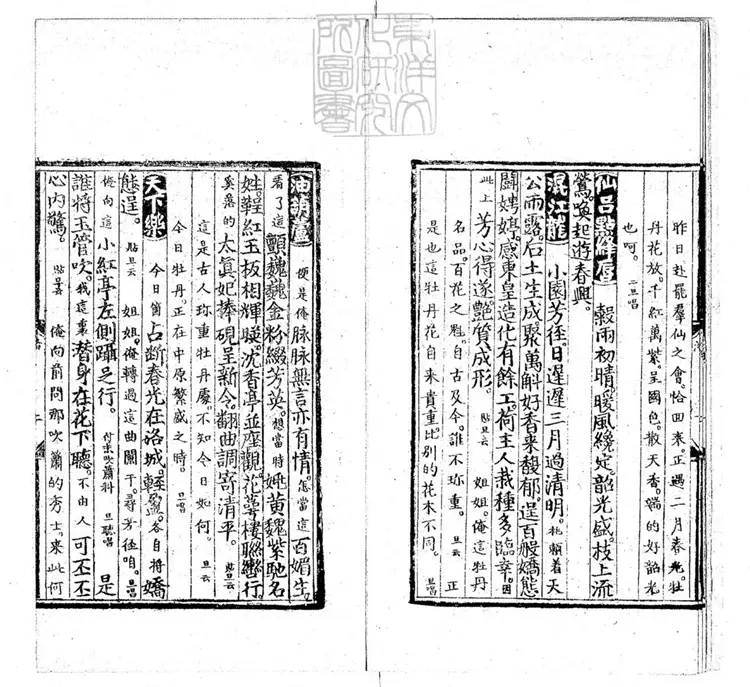 東洋文
化研究
所圖書
昨日赴罷羣仙之會。恰回来。正遇二月春光。牡
丹花放。千紅萬紫。呈國色。散天香。端的好韶光
也呵。二旦唱
仙呂點絳唇 穀雨初晴。暖風纔定韶光盛。枝上流
鶯。喚起遊春興。
混江龍 小園芳徑。日遲遲三月過清明。托賴着天
公雨露。后土生成。聚萬斛好香来馥郁。逞百般嬌態
鬭娉婷。感東皇造化有餘工。荷主人栽種多臨幸。因
此上芳心得遂。艷質成形。貼旦云 姐姐。俺這牡丹
名品。百花之魁。自古及今。誰不珍重。旦云 正
是也這牡丹花自来貴重比别的花木不同。旦唱
油葫蘆 便是俺脉脉無言亦有情。怎當這百媚生。
看了這顫巍巍金粉綴芳英。想當時姚黄魏紫馳名
姓。鞓紅玉板相輝暎。沈香亭並座觀。花萼樓聯轡行
奚落的太真妃捧硯呈新令。翻曲調寄清平。貼旦云
這是古人珍重牡丹處。不知今日如何。旦云
今日牡丹。正在中原繁盛之時。旦唱
天下樂 今日箇占斷春光在洛城。輕盈。各自將嬌
態逞。貼旦云 姐姐。俺轉過這曲闌干。尋芳徑咱。旦唱
俺向這小紅亭左側躡足行。付末吹簫科 旦聽唱 是
誰將玉管吹。我這裏潛身在花下聽。不由人可丕丕
心内驚。貼旦云 俺向前問那吹簫的秀士。来此何